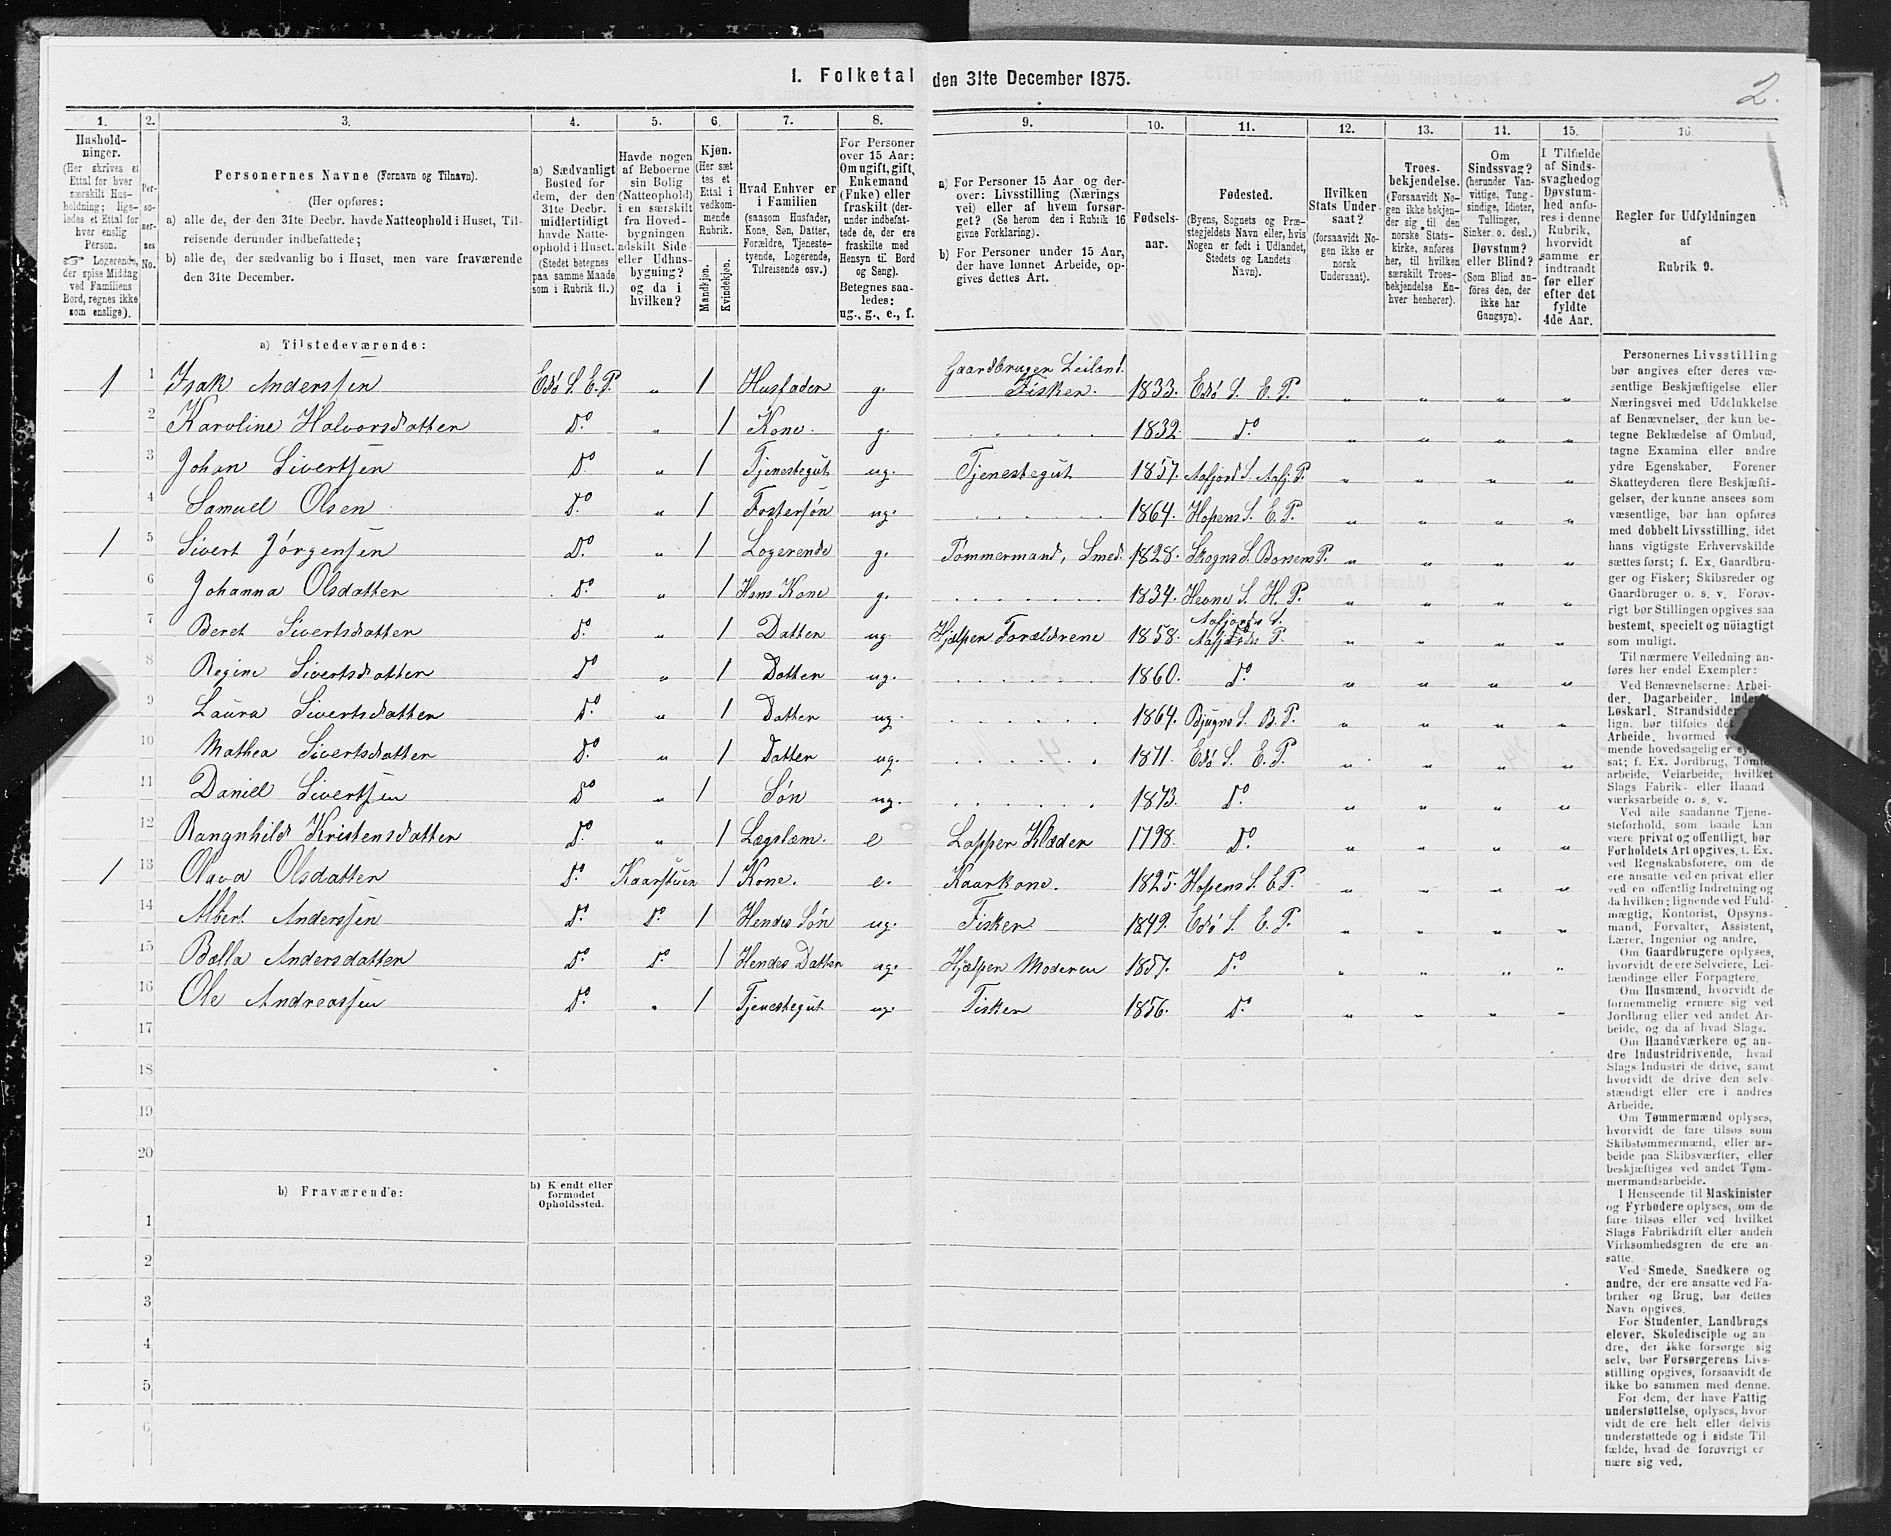 1. Folketal den 31te December 1875.
2.
1. 2. 3. 4. 5. 6. 7. 8. 9. 10. 11. 12. 13. 14. 15. 16.
Hushold-
ninger.
(Her skrives et
Ettal for hver
særskilt Hus-
holdning; lige-
ledes et Ettal for
hver enslig
Person.
☞ Logerende,
der spise Middag
ved Familiens
Bord, regnes ikke
som enslige).
Per-
so-
ner-
nes
No.
Personernes Navne (Fornavn og Tilnavn).
(Her opføres:
a) alle de, der den 31te Decbr. havde Natteophold i Huset, Til-
reisende derunder indbefattede;
b) alle de, der sædvanlig bo i Huset, men vare fraværende
den 31te December.
a) Sædvanligt
Bosted for
dem, der den
31te Decbr.
midlertidigt
havde Natte-
ophold i Huset.
(Stedet betegnes
paa samme Maade
som i Rubrik 11.)
Havde nogen
af Beboerne
sin Bolig
(Natteophold)
i en særskilt
fra Hoved-
bygningen
adskilt Side-
eller Udhus-
bygning?
og da i
hvilken?
Kjøn.
(Her sæt-
tes et
Ettal i
vedkom-
mende
Rubrik.
Mandkjøn.
Kvindekjøn.
Hvad Enhver er
i Familien
(saasom Husfader,
Kone, Søn, Datter,
Forældre, Tjeneste-
tyende, Logerende,
Tilreisende osv.)
For Personer
over 15 Aar:
Om ugift, gift,
Enkemand
(Enke) eller
fraskilt (der-
under indbefat-
tede de, der ere
fraskilte med
Hensyn til Bord
og Seng).
Betegnes saa-
ledes:
ug., g., e., f.
a) For Personer 15 Aar og der-
over: Livsstilling (Nærings
vei) eller af hvem forsør-
get? (Se herom den i Rubrik 16
givne Forklaring).
b) For Personer under 15 Aar,
der have lønnet Arbeide, op-
gives dettes Art.
Fødsels-
aar.
Fødested.
(Byens, Sognets og Præ-
stegjeldets Navn eller, hvis
Nogen er født i Udlandet,
Stedets og Landets
Navn).
Hvilken
Stats Under-
saat?
(forsaavidt No-
gen ikke er
norsk
Undersaat).
Troes-
bekjendelse.
(Forsaavidt No-
gen ikke bekjen-
der sig til den
norske Stats-
kirke, anføres
her, til hvilken
særskilt Troes-
bekjendelse En-
hver henhører).
Om
Sindssvag?
(herunder Van-
vittige, Tung-
sindige, Idioter,
Tullinger,
Sinker o. desl.)
Døvstum?
eller Blind?
(Som Blind an-
føres den, der
ikke har
Gangsyn).
I Tilfælde
af Sinds-
svaghed og
Døvstum-
hed anfø-
res i denne
Rubrik,
hvorvidt
samme er
indtraadt
før eller
efter det
fyldte
4de Aar.
Regler for Udfyldningen
af
Rubrik 9.
a) Tilstedeværende:
1 1 Isak Anderssen Edø S. E. P. „ 1 Husfader g. Gaardbruger Leiland. Fisker. 1833. Edø S. E. P. „ „ „ „
2 Karoline Halvorsdatter Do „ 1 Kone. g. 1832. Do „ „ „ „
3 Johan Sivertsen Do „ 1 Tjenestegut ug. Tjenestegut 1857. Aafjord S. Aafj. P. „ „ „ „
4 Samuel Olsen Do „ 1 Fostersøn ug. 1864. Hopens S. E. P. „ „ „ „
1 5 Sivert Jørgensen Do „ 1 Logerende g. Tømmermand, Smed. 1828. Skogns S. Børsens P. „ „ „ „
6 Johanna Olsdatter Do „ 1 Hans Kone g. 1834. Hevne S. H. P. „ „ „ „
7 Beret Sivertsdatter Do „ 1 Datter ug. Hjælper Forældrene 1858. Aafjords S. Aafjords P. „ „ „ „
8 Regine Sivertsdatter Do „ 1 Datter ug. 1860. Do „ „ „ „
9 Laura Sivertsdatter Do „ 1 Datter ug. 1864. Bjugns S. B. P. „ „ „ „
10 Mathea Sivertsdatter Do „ 1 Datter ug. 1871. Edø S. E. P. „ „ „ „
11 Daniel Sivertsen Do „ 1 Søn ug. 1873. Do „ „ „ „
12 Rangnhild Kristensdatter Do „ 1 Lægslem. e Lapper Klæder 1798. Do „ „ „ „
1 13 Olava Olsdatter Do Kaarstuen 1 Kone. e. Kaarkone. 1825. Hopens S. E P. „ „ „ „
14 Albert Anderssen Do Do 1 Hendes Søn ug. Fisker. 1849. Edø S. E. P. „ „ „ „
15 Bolla Andersdatter Do Do 1 Hendes Datter ug. Hjælper Moderen 1857. Do „ „ „ „
16 Ole Andreassen Do „ 1 Tjenestegut ug. Fisker 1856. Do „ „ „ „
17
18
19
20
b) Fraværende:
b) Kjendt eller
formodet
Opholdssted.
1
2
3
4
5
6
Personernes Livsstilling
bør angives efter deres væ-
sentlige Beskjæftigelse eller
Næringsvei med Udelukkelse
af Benævnelser, der kun be-
tegne Beklædelse af Ombud,
tagne Examina eller andre
ydre Egenskaber. Forener
Skatteyderen flere Beskjæfti-
gelser, der kunne ansees som
væsentlige, bør han opføres
med dobbelt Livsstilling, idet
hans vigtigste Erhvervskilde
sættes først; f. Ex. Gaardbru-
ger og Fisker; Skibsreder og
Gaardbruger o. s. v. Forøv-
rigt bør Stillingen opgives saa
bestemt, specielt og nøiagtigt
som muligt.
Til nærmere Veiledning an-
føres her endel Exempler:
Ved Benævnelserne: Arbei-
der, Dagarbeider,
Løskarl, Strandsidder
lign. bør tilføies det
Arbeide, hvormed
mende hovedsagelig er
sat; f. Ex. Jordbrug,
arbeide, Veiarbeide, hvilket
Slags Fabrik- eller Haand
værksarbeide o. s. v.
Ved alle saadanne Tjene-
steforhold, som baade kan
være privat og offentligt, bør
Forholdets Art opgives, f. Ex.
ved Regnskabsførere, om de
ere ansatte ved en privat eller
ved en offentlig Indretning og
da hvilken; lignende ved Fuld-
mægtig, Kontorist, Opsyns-
mand, Forvalter, Assistent,
Lærer, Ingeniør og andre.
Om Gaardbrugere oplyses,
hvorvidt de ere Selveiere, Lei-
lændinge eller Forpagtere.
Om Husmænd, hvorvidt de
fornemmelig ernære sig ved
Jordbrug eller ved andet Ar-
beide, og da af hvad Slags.
Om Haandværkere og an-
dre Industridrivende, hvad
Slags Industri de drive, samt
hvorvidt de drive den selv-
stændigt eller ere i andres
Arbeide.
Om Tømmermænd oplyses,
hvorvidt de fare tilsøs som
Skibstømmermænd, eller ar-
beide paa Skibsværfter, eller
beskjæftiges ved andet Tøm-
mermandsarbeide.
I Henseende til Maskinister
og Fyrbødere oplyses, om de
fare tilsøs eller ved hvilket
Slags Fabrikdrift eller anden
Virksomhedsgren de ere an-
satte.
Ved Smede, Snedkere og
andre, der ere ansatte ved Fa-
briker og Brug, bør dettes
Navn opgives.
For Studenter, Landbrugs
elever, Skoledisciple og an-
dre, der ikke forsørge sig
selv, bør Forsørgerens Livs-
stilling opgives, forsaavidt de
ikke bo sammen med denne.
For dem, der have Fattig
understøttelse, oplyses, hvor-
vidt de ere helt eller delvis
understøttede og i sidste Til-
fælde, hvad de forøvrigt er
nære sig ved.